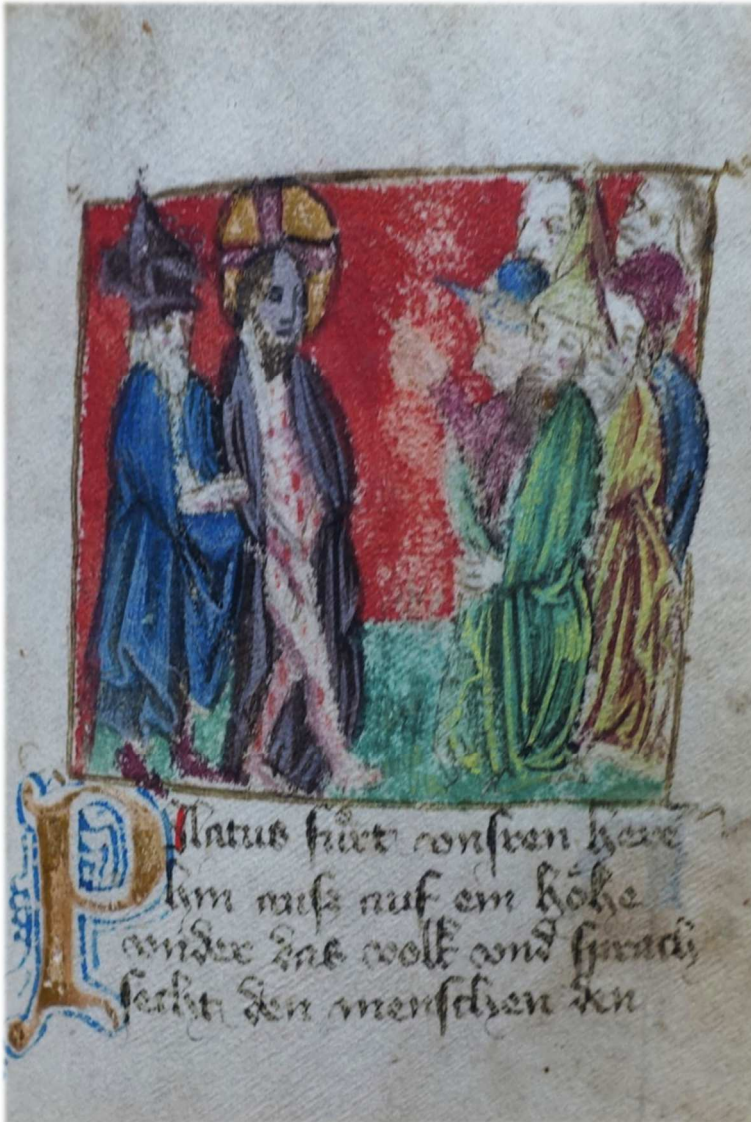 Pilatus fůrt vnsren here
hin auss auf ein höhe
vnder das volk vnd sprach
secht den menschen den